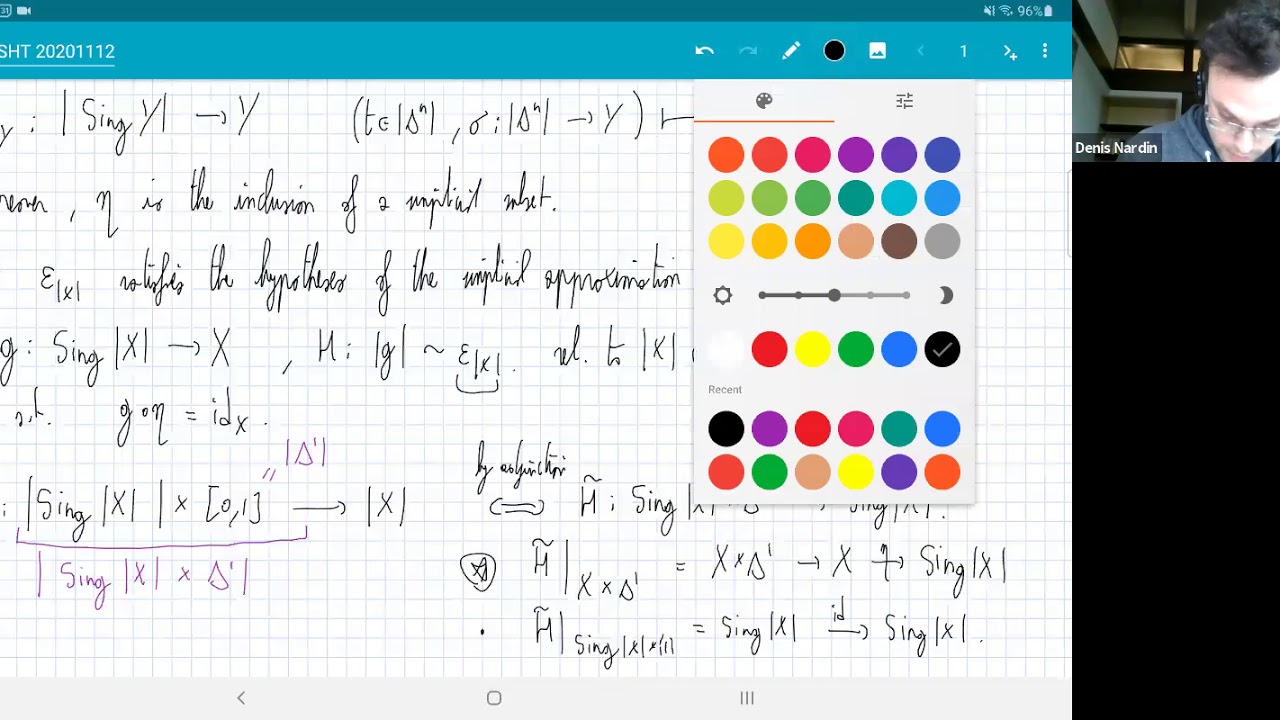 31 96%
SHT 20201112 1
Denis Nardin
y : |Sing Y| → Y (t ∈ |Δⁿ|, σ : |Δⁿ| → Y) ⊢
reover, η is the inclusion of a simplicial subset.
ε_{|X|} satisfies the hypotheses of the simplicial approximation
g : Sing |X| → X , H : |g| ~ ε_{|X|}. rel. to |X|
s.t. g∘η = id_X.
|Δ¹|
by adjunction
: |Sing |X|| × [0,1] → |X| ⟺ H̃ : Sing |X| × Δ¹ → Sing |X|.
|Sing |X| × Δ¹|
H̃|_{X×Δ¹} = X×Δ¹ → X →^η Sing|X|
· H̃|_{Sing|X|×{1}} = Sing|X| →^{id} Sing|X|.
Recent